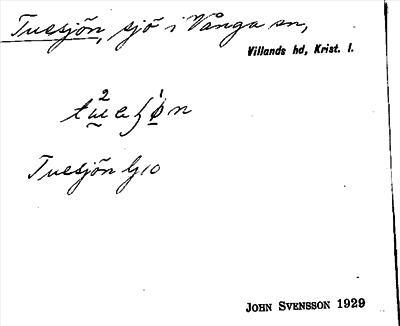 Tuesjön, sjö i Vånga sn,
Villands hd, Krist. l.
Tuesjön
JOHN SVENSSON 1929